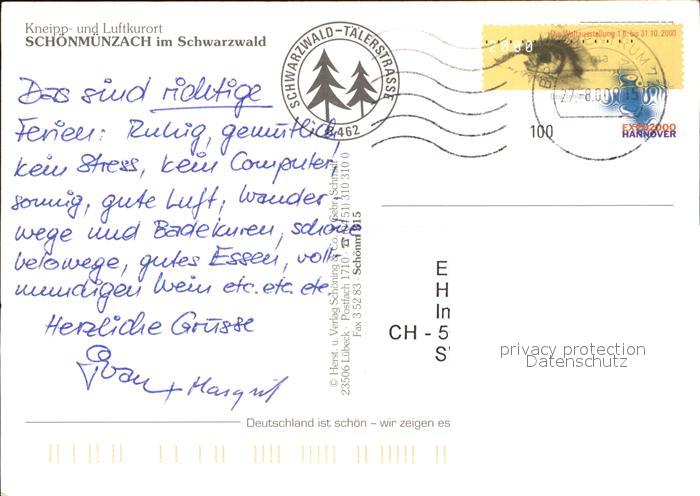 Kneipp- und Luftkurort
SCHÖNMÜNZACH im Schwarzwald
SCHWARZWALD-TÄLERSTRASSE
B 462
Die Weltausstellung 1.6. bis 31.10.2000
2000
100
EXPO2000
HANNOVER
Das sind richtige
Ferien: Ruhig, gemütlich,
kein Stress, kein Computer,
sonnig, gute Luft, Wander
wege und Badekuren, schöne
velowege, gutes Essen, voll
mundigen Wein etc. etc. etc.
Herzliche Grüsse
+ Margrit
© Herst. u. Verlag Schöning & Co + Gebr. Schmidt
23506 Lübeck · Postfach 1710 · ☎ (04 51) 310 310 0
Fax 3 52 83 · Schönm 815
E
H
Im
CH - 50
S
privacy protection
Datenschutz
Deutschland ist schön – wir zeigen es